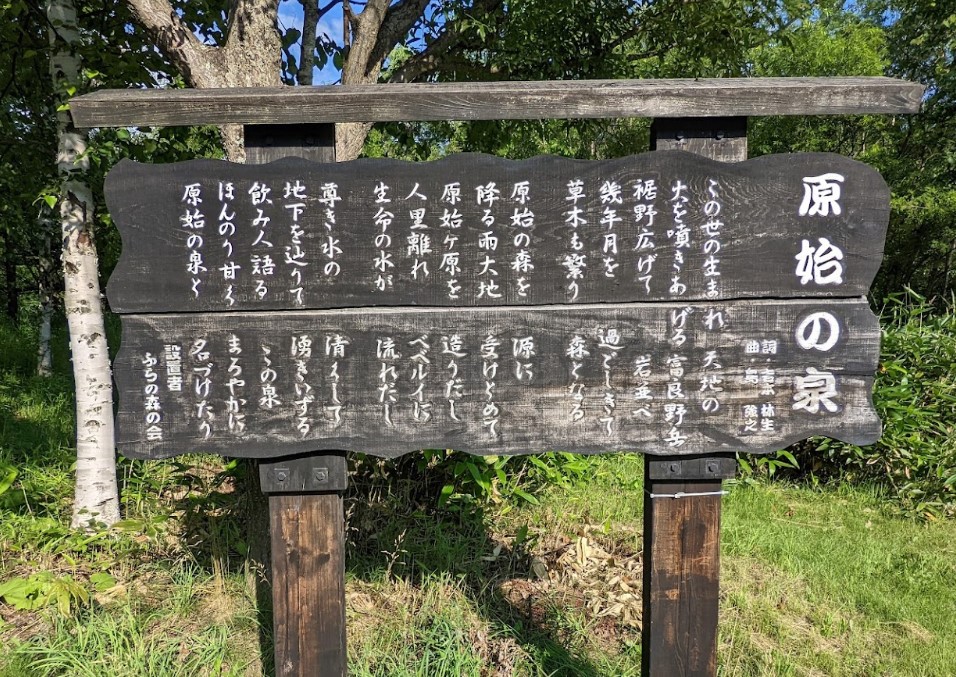 原始の泉
詞 林生
曲 之
この世の生まれ 天地の
火を噴きあげる 富良野岳
裾野広げて 岩並べ
幾年月を 過ごしきて
草木も繁り 森となる
原始の森を 源に
降る雨大地 受けとめて
原始ヶ原を 造りだし
人里離れ ベベルイに
生命の水が 流れだし
尊き水の 清くして
地下を辿りて 湧きいずる
飲み人語る この泉
ほんのり甘く まろやかに
原始の泉と 名づけたり
設置者
ふらの森の会